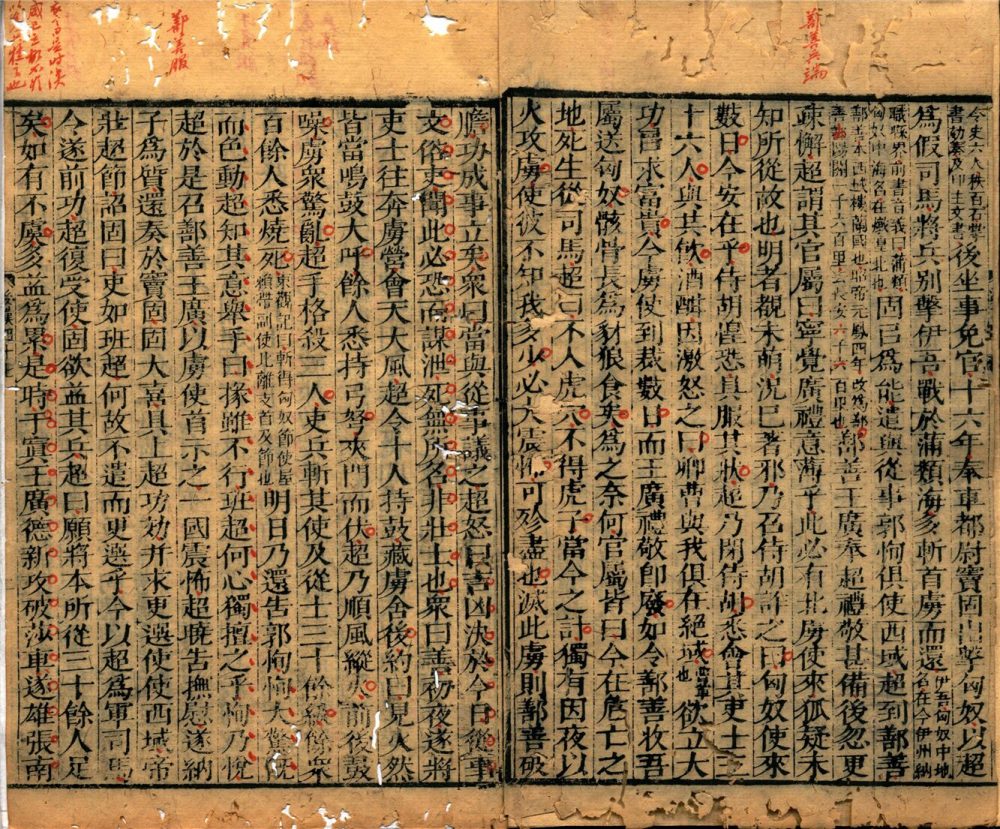 後坐事免官十六年奉車都尉竇固出擊匈奴以超
爲假司馬將兵别擊伊吾戰於蒲類海多斬首虜而還伊吾匈奴中地名在今伊州納
職縣界前書音義曰蒲類匈奴中海名在敦煌北也固以爲能遣與從事郭恂俱使西域超到鄯善
鄯善本西域樓蘭國也昭帝元鳳四年改爲鄯善鄯善王廣奉超禮敬甚備後忽更
疎懈超謂其官屬曰寧覺廣禮意薄乎此必有北虜使來狐疑未
知所從故也明者覩未萌況已著邪乃召侍胡詐之曰匈奴使來
數日今安在乎侍胡惶恐具服其狀超乃閉侍胡悉會其吏士三
十六人與其飲酒酣因激怒之曰卿曹與我俱在絕域曹輩也欲立大
功㠯求富貴今虜使到裁數日而王廣禮敬即廢如令鄯善收吾
屬送匈奴骸骨長爲豺狼食矣爲之奈何官屬皆曰今在危亡之
地死生從司馬超曰不入虎穴不得虎子當今之計獨有因夜以
火攻虜使彼不知我多少必大震怖可殄盡也滅此虜則鄯善破
膽功成事立矣衆曰當與從事議之超怒曰吉凶決於今日從事
文俗吏聞此必恐而謀泄死無所名非壯士也衆曰善初夜遂將
吏士往奔虜營會天大風超令十人持鼓藏虜舍後約曰見火然
皆當鳴鼓大呼餘人悉持弓弩夾門而伏超乃順風縱火前後鼓
噪虜衆驚亂超手格殺三人吏兵斬其使及從士三十餘級餘衆
百餘人悉燒死東觀記曰斬得匈奴節使屋賴帶副使比離支首及節也明日乃還告郭恂恂大驚旣
而色動超知其意舉手曰掾雖不行班超何心獨擅之乎恂乃悅
超於是召鄯善王廣以虜使首示之一國震怖超曉告撫慰遂納
子爲質還奏於竇固固大喜具上超功効并求更選使使西域帝
壯超節詔固曰吏如班超何故不遣而更選乎今以超爲軍司馬
令遂前功超復受使固欲益其兵超曰願將本所從三十餘人足
矣如有不虞多益爲累是時于窴王廣德新攻破莎車遂雄張南